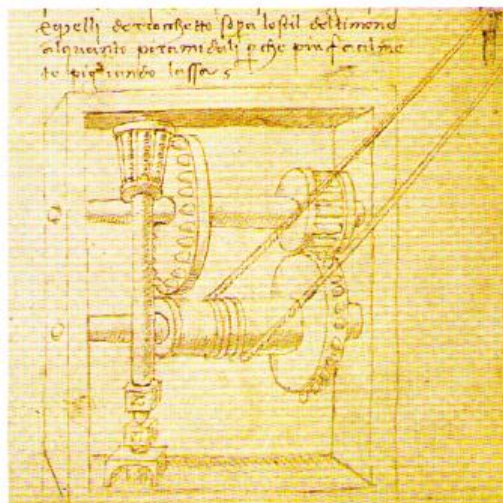 equelli de rocchetto sopa lostil deltimone
alquanto piramidali che piu facilme
te lassa